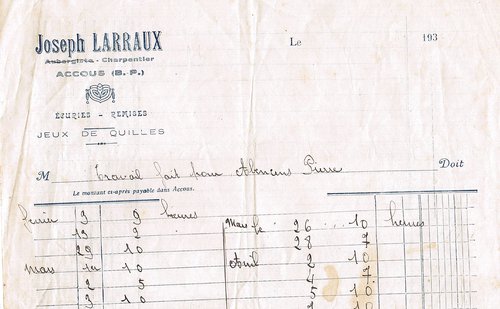 Joseph LARRAUX
Le 193
Aubergiste - Charpentier
ACCOUS (B.-P.)
ÉCURIES - REMISES
JEUX DE QUILLES
M Travail fait pour Pierre Doit
Le montant ci-après payable dans Accous.
février 9 9 heures
19 2
29 10
mars 1er 10
2 5
3 10
Mars le 26 10 heures
28 9
Avril 2 10
4 9
5 10
10